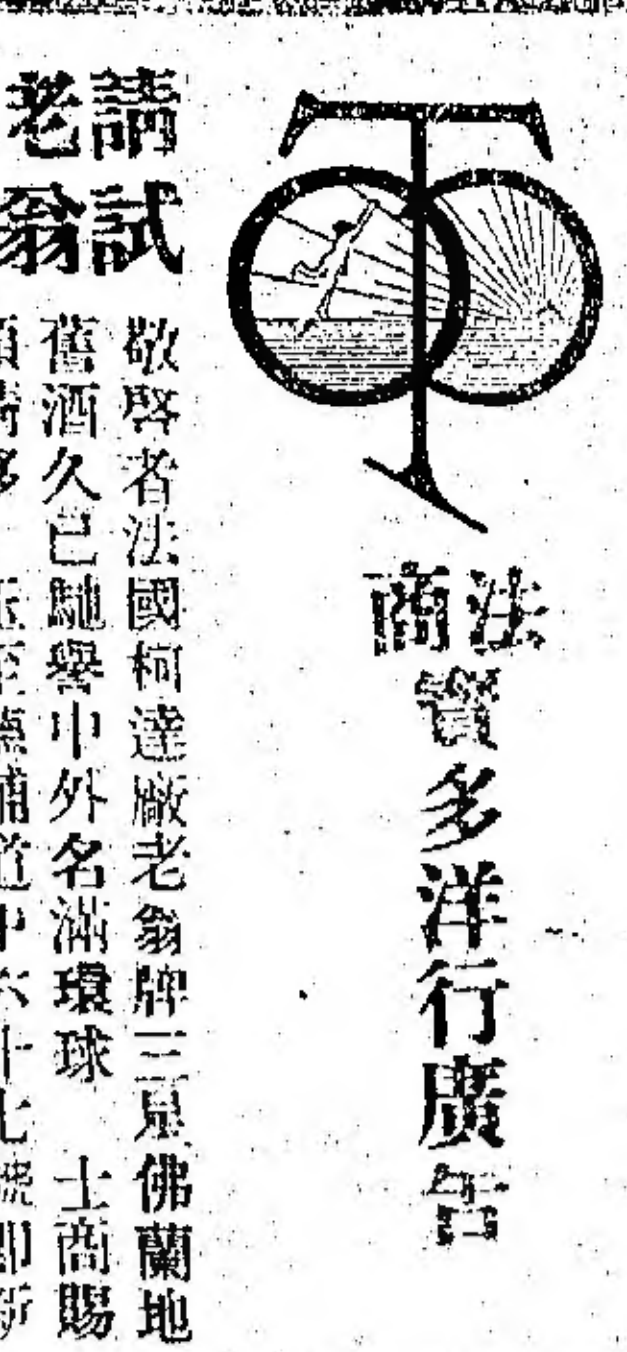 法商
寶多洋行廣告
請試
老翁
敬啓者法國柯達廠老翁牌三星佛蘭地
舊酒久已馳譽中外名滿環球 士商賜
道中六十七號即新